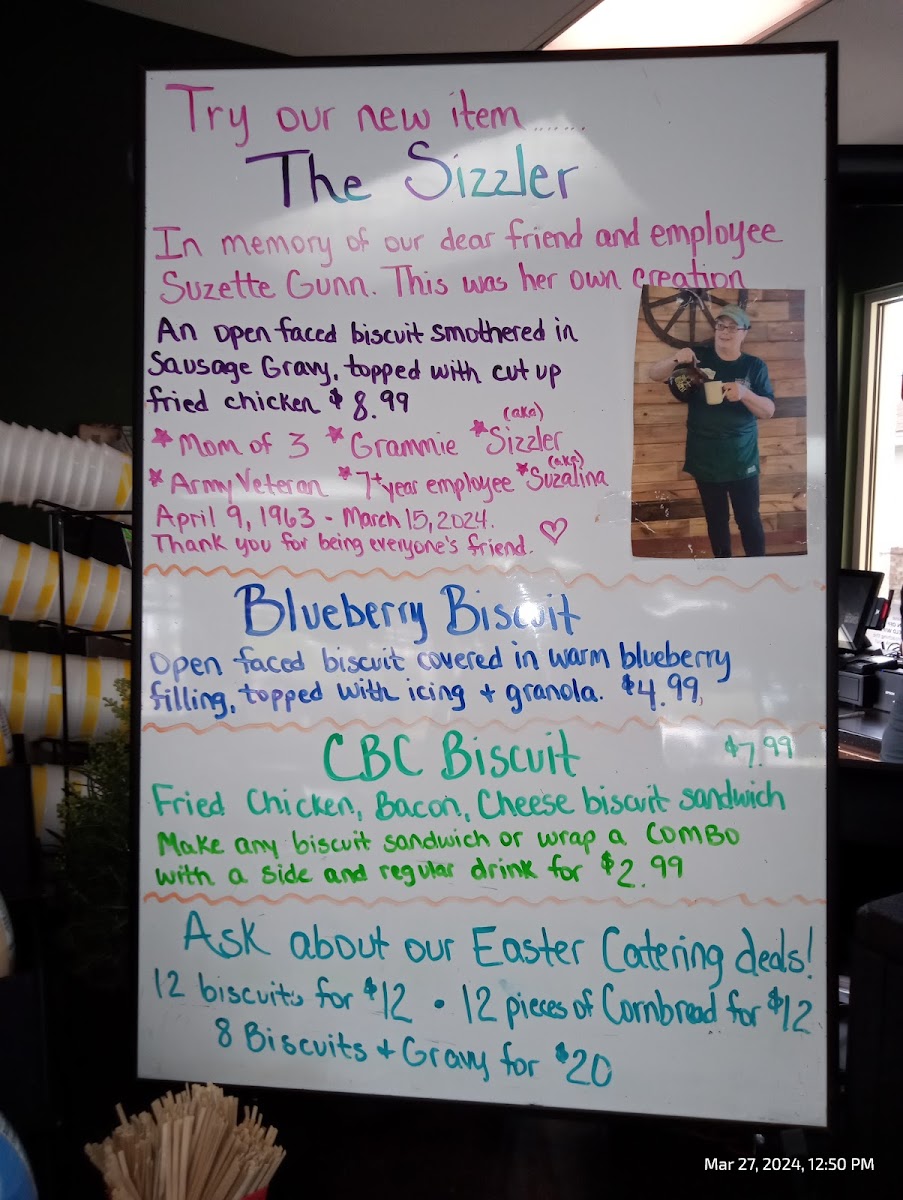 Try our new item.......
The Sizzler
In memory of our dear friend and employee
Suzette Gunn. This was her own creation
An open faced biscuit smothered in
Sausage Gravy, topped with cut up
fried chicken $8.99
(aka)
*Mom of 3 *Grammie *Sizzler
(aka)
*Army Veteran *7+year employee *Suzalina
April 9, 1963 - March 15, 2024.
Thank you for being everyone's friend. ♡
Blueberry Biscuit
Open faced biscuit covered in warm blueberry
filling, topped with icing + granola. $4.99
CBC Biscuit $7.99
Fried Chicken, Bacon, Cheese biscuit sandwich
Make any biscuit sandwich or wrap a COMBO
with a side and regular drink for $2.99
Ask about our Easter Catering deals!
12 biscuits for $12 • 12 pieces of Cornbread for $12
8 Biscuits + Gravy for $20
Mar 27, 2024, 12:50 PM